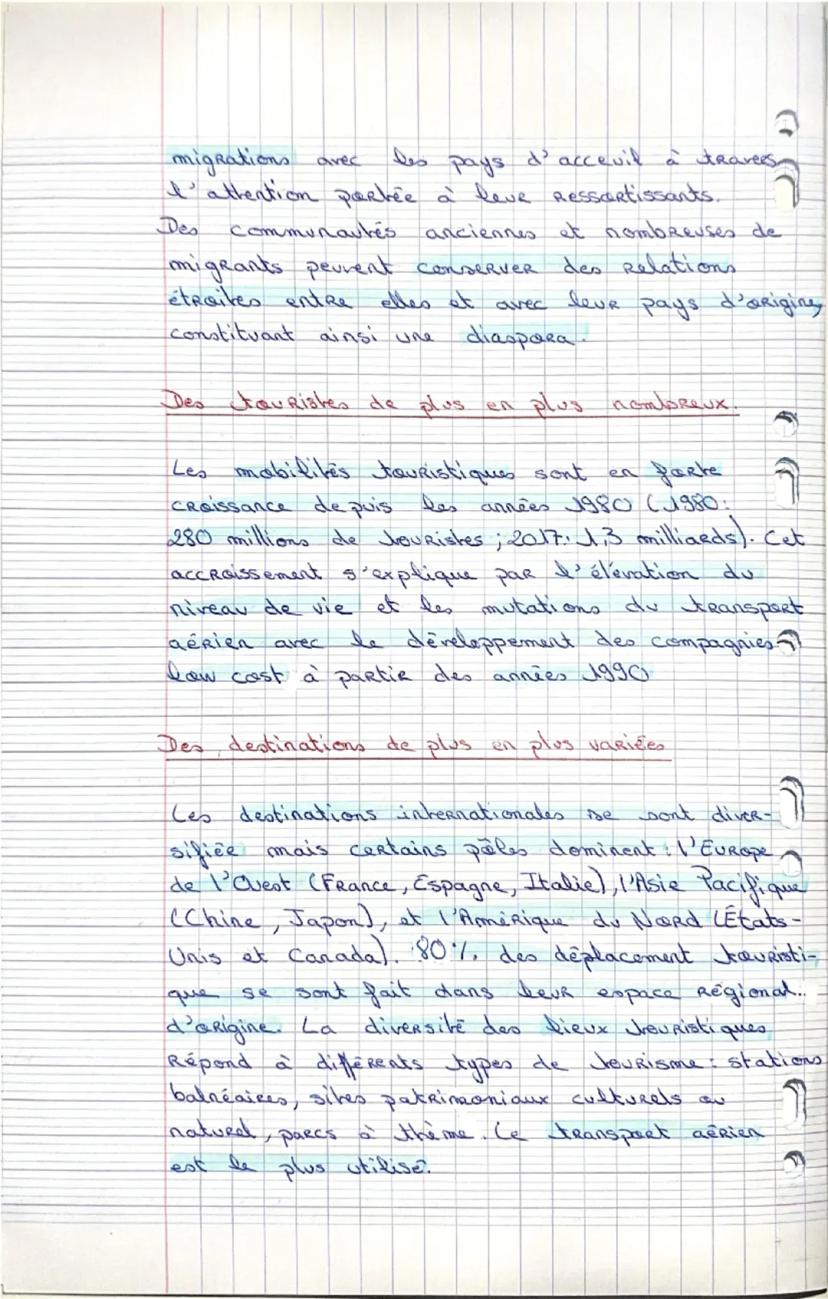 migrations avec les pays d'acceuil à travers
l'attention portée à leur ressortissants.
Des communautés anciennes et nombreuses de
migrants peuvent conserver des relations
étroites entre elles et avec leur pays d'origine,
constituant ainsi une diaspora.
Des touristes de plus en plus nombreux.
Les mobilités touristiques sont en forte
croissance depuis les années 1980 (1980:
280 millions de touristes ; 2017: 1,3 milliards). Cet
accroissement s'explique par l'élévation du
niveau de vie et les mutations du transport
aérien avec le développement des compagnies
low cost à partir des années 1990
Des destinations de plus en plus variées
Les destinations internationales se sont diver-
sifiée mais certains pôles dominent : l'Europe
de l'Ouest (France, Espagne, Italie), l'Asie Pacifique
(Chine, Japon), et l'Amérique du Nord (États-
Unis et Canada). 80% des déplacement touristi-
que se sont fait dans leur espace régional..
d'origine. La diversité des lieux touristiques
répond à différents types de tourisme : stations
balnéaires, sites patrimoniaux culturels ou
naturel, parcs à thème. Le transport aérien
est le plus utilisé.